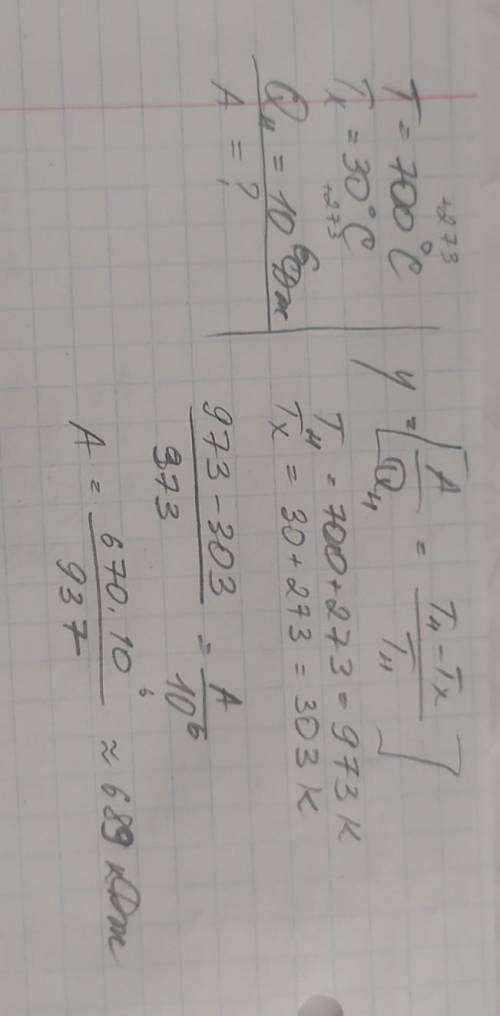 T = 700°C +273
Tх = 30°C +273
Qн = 10⁶ Дж
A = ?
η = [A/Qн = (Tн - Tх)/Tн]
Tн = 700 + 273 = 973 К
Tх = 30 + 273 = 303 К
(973 - 303)/973 = A/10⁶
A = (670 · 10⁶)/937 ≈ 689 кДж